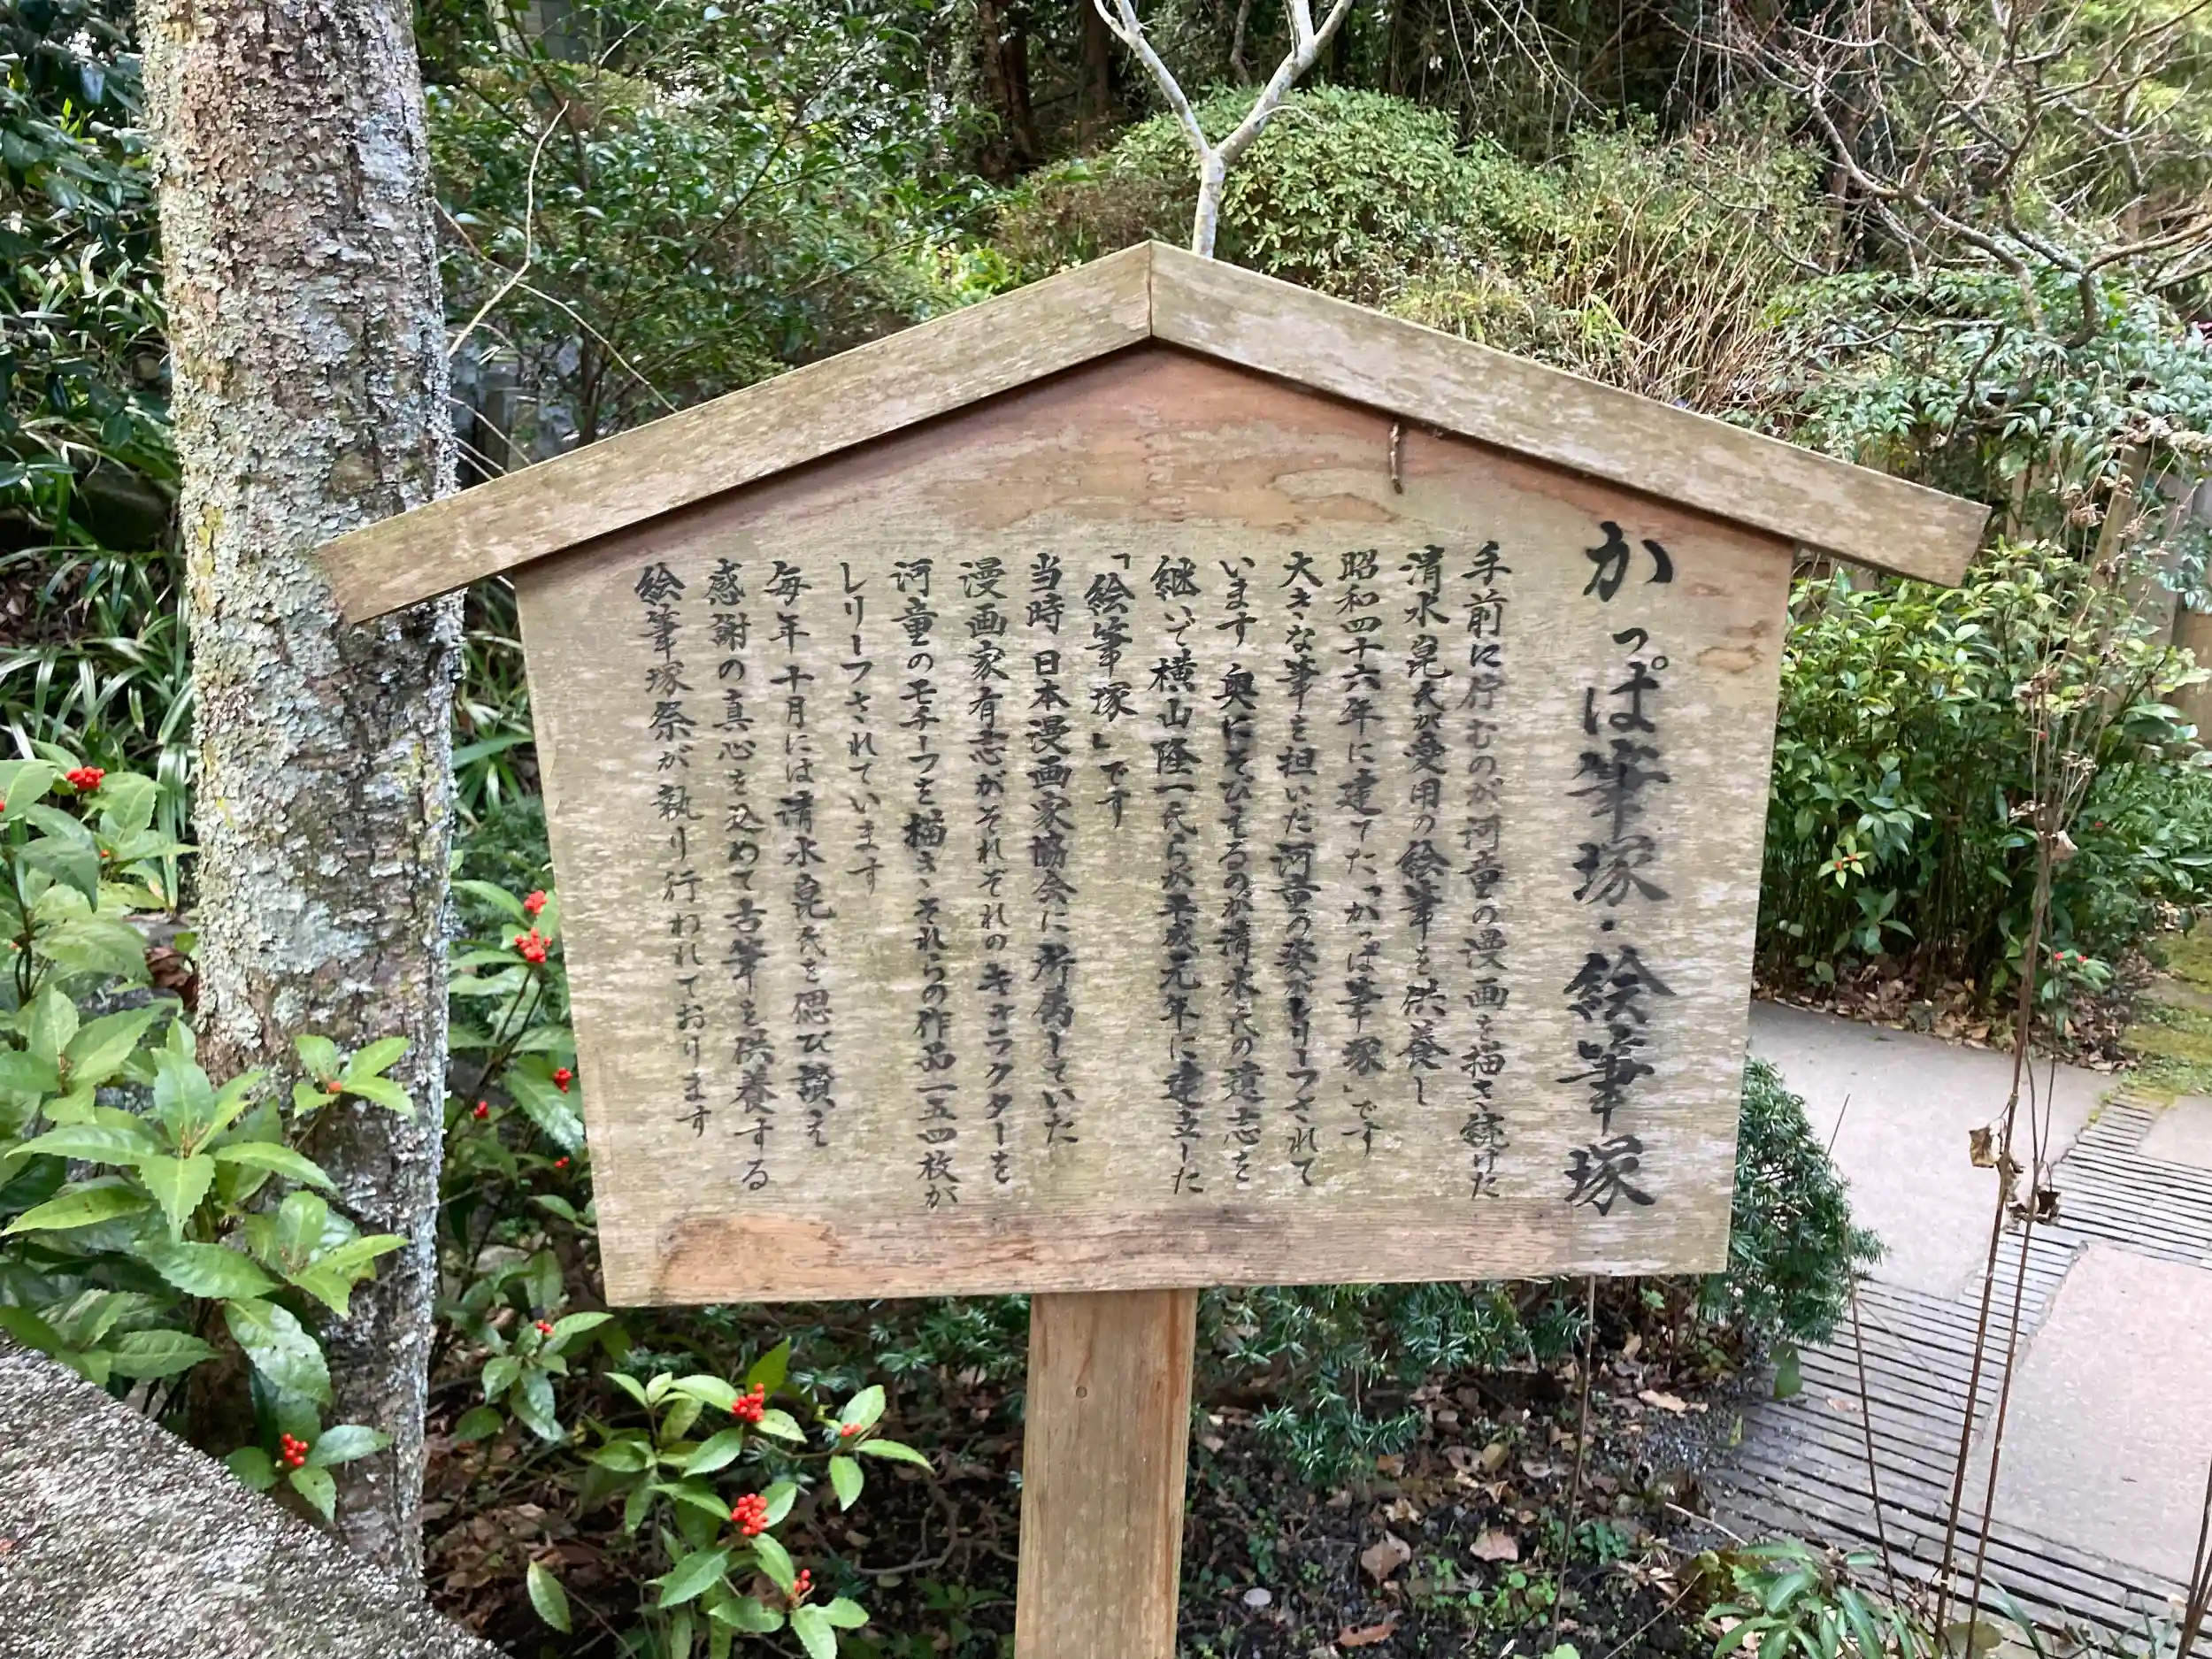 かっぱ筆塚・絵筆塚
手前に佇むのが河童の漫画を描き続けた
清水崑氏が愛用の絵筆を供養し
昭和四十六年に建てた「かっぱ筆塚」です
大きな筆を担いだ河童の姿がレリーフされて
います 奥にそびえるのが清水氏の遺志を
継いで横山隆一氏らが平成元年に建立した
「絵筆塚」です
当時 日本漫画家協会に所属していた
漫画家有志がそれぞれのキャラクターを
河童のモチーフを描き、それらの作品一五四枚が
レリーフされています
毎年 十月には清水崑氏を偲び讃え
感謝の真心を込めて古筆を供養する
絵筆塚祭が執り行われております